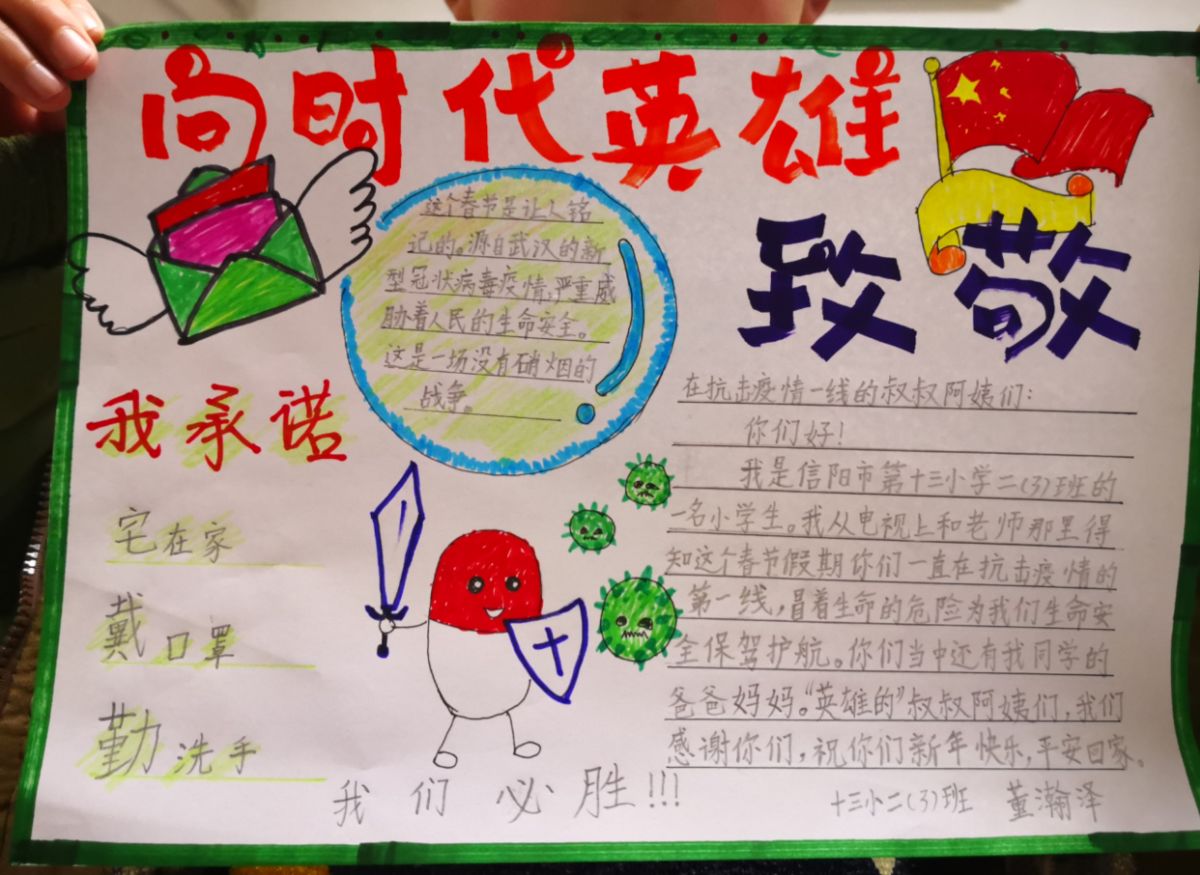 向时代英雄
致敬
这个春节是让人铭
记的。源自武汉的新
型冠状病毒疫情,严重威
胁着人民的生命安全。
这是一场没有硝烟的
战争。
我承诺
宅在家
戴口罩
勤洗手
在抗击疫情一线的叔叔阿姨们:
你们好!
我是信阳市第十三小学二(3)班的
一名小学生。我从电视上和老师那里得
知这个春节假期你们一直在抗击疫情的
第一线,冒着生命的危险为我们生命安
全保驾护航。你们当中还有我同学的
爸爸妈妈。“英雄的”叔叔阿姨们,我们
感谢你们,祝你们新年快乐,平安回家。
十三小二(3)班 董瀚泽
我们必胜!!!